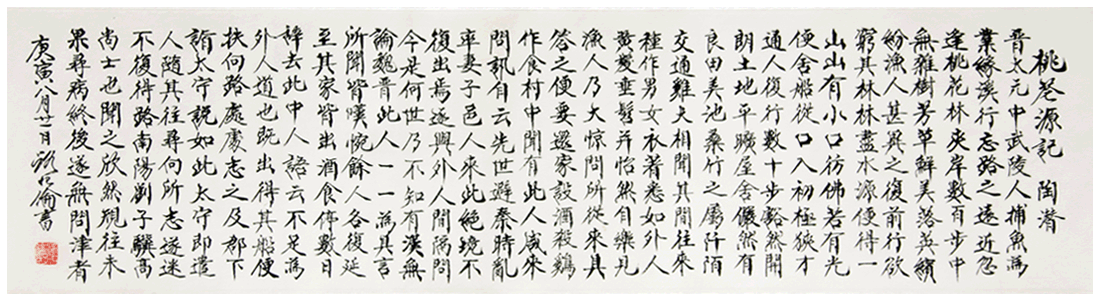 桃花源記 陶潛
晉太元中武陵人捕魚為
業緣溪行忘路之遠近忽
逢桃花林夾岸數百步中
無雜樹芳草鮮美落英繽
紛漁人甚異之復前行欲
窮其林林盡水源便得一
山山有小口彷佛若有光
便舍船從口入初極狹才
通人復行數十步豁然開
朗土地平曠屋舍儼然有
良田美池桑竹之屬阡陌
交通雞犬相聞其間往來
種作男女衣著悉如外人
黃髮垂髫并怡然自樂見
漁人乃大惊問所從來具
答之便要還家設酒殺鷄
作食村中聞有此人咸來
問訊自云先世避秦時亂
率妻子邑人來此絕境不
復出焉遂與外人間隔問
今是何世乃不知有漢無
論魏晉此人一一為具言
所聞皆嘆惋餘人各復延
至其家皆出酒食停數日
辭去此中人語云不足為
外人道也既出得其船便
扶向路處處志之及郡下
詣太守說如此太守即遣
人隨其往尋向所志遂迷
不復得路南陽劉子驥高
尚士也聞之欣然規往未
果尋病終後遂無問津者
庚寅八月廿日倫書